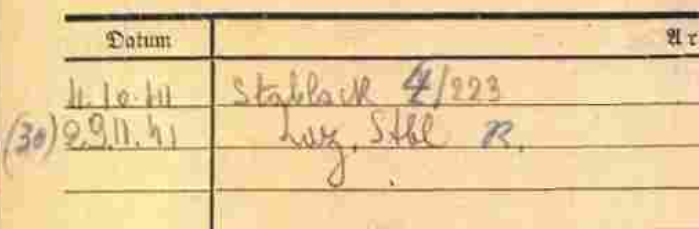 Datum Ar
4.10.41 Stablack 4/223
(30) 29.11.41 Laz. Stbl R.